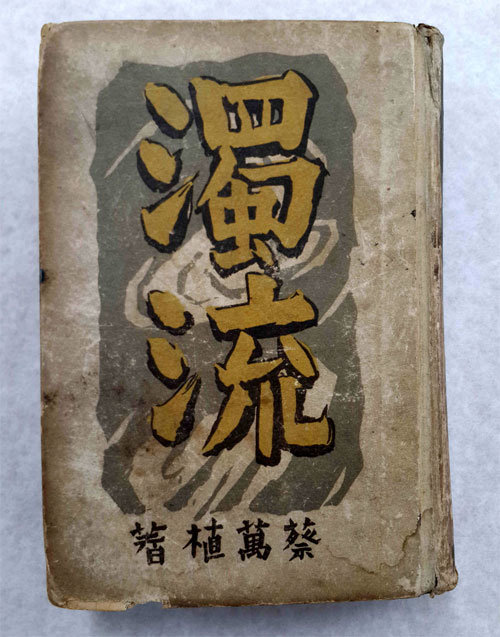 濁流
蔡萬植著